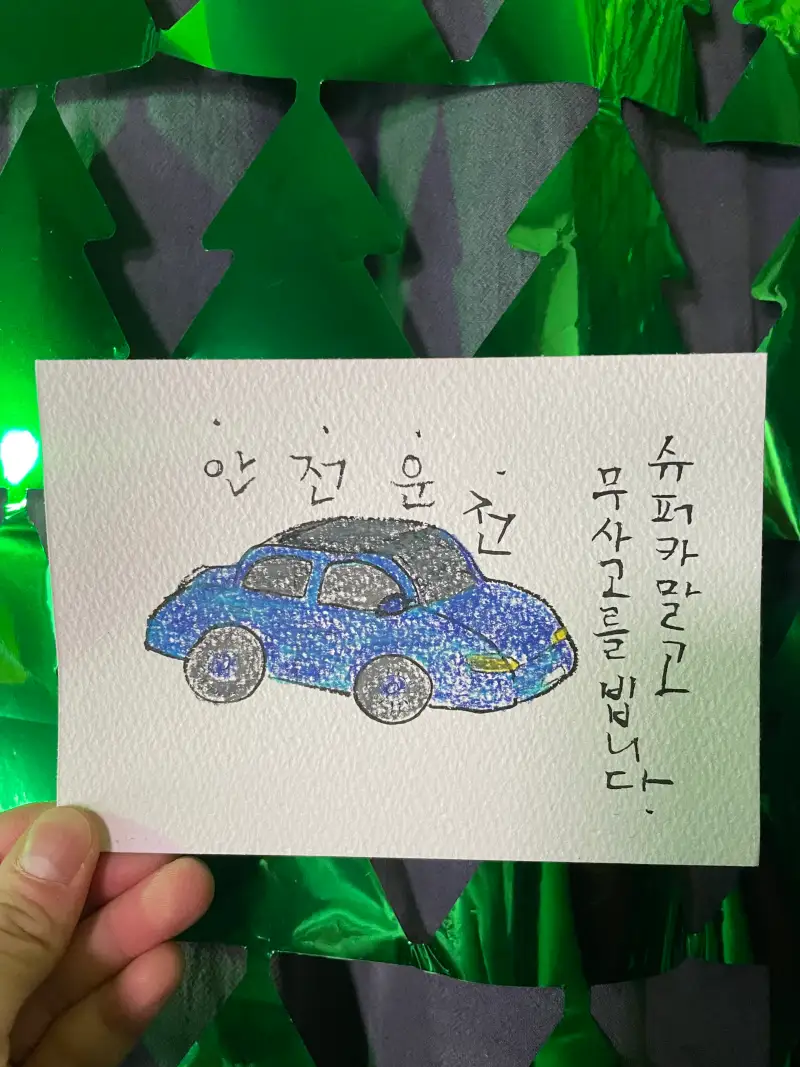 안전운전
슈퍼카말고
무사고를빕니다.